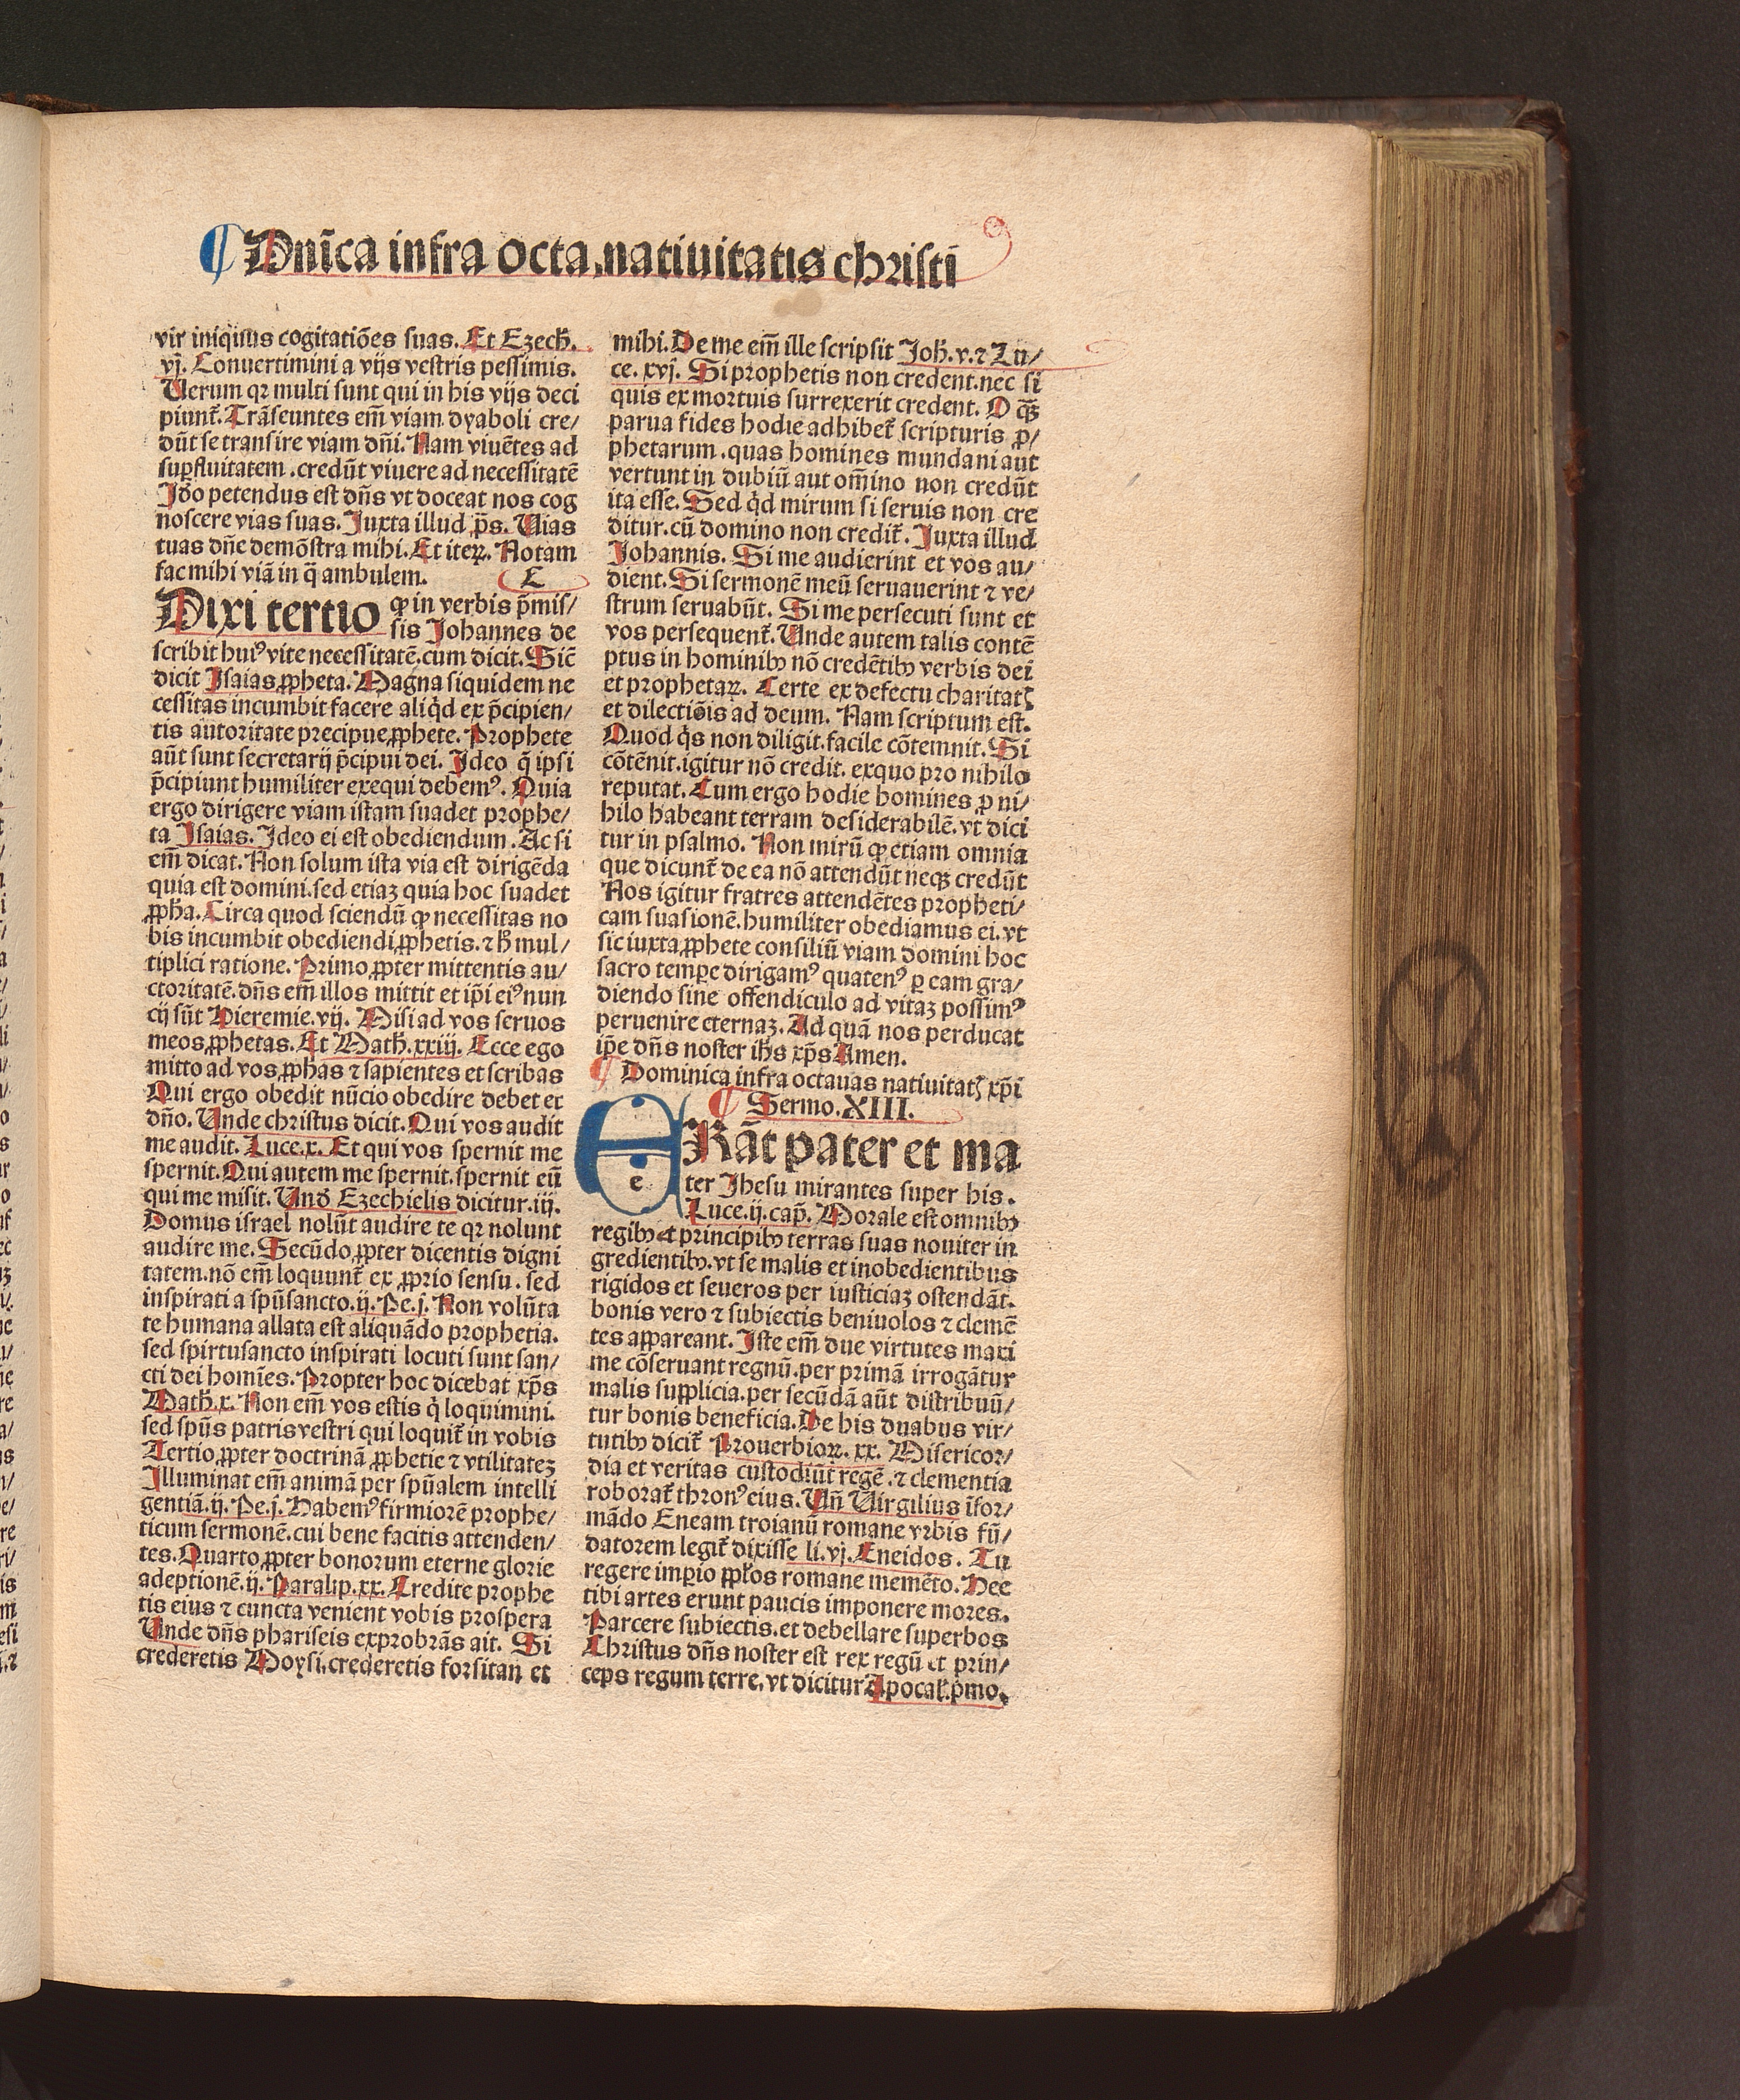 ¶ Dnīca infra octa. natiuitatis christi
vir iniquus cogitatiōes suas. Et Ezech.
vj. Conuertimini a vijs vestris pessimis.
Uerum qꝛ multi sunt qui in his vijs deci
piunt̄. Trāseuntes em̄ viam dyaboli cre/
dūt se transire viam dn̄i. Nam viuētes ad
suꝑfluitatem. credūt viuere ad necessitatē
Jdo petendus est dn̄s vt doceat nos cog
noscere vias suas. Juxta illud p̄s. Uias
tuas dn̄e demōstra mihi. Et iteꝝ. Notam
fac mihi viā in q̄ ambulem. C
Dixi tertio ꝙ in verbis p̄mis/
sis Johannes de
scribit huiꝰ vite necessitatē. cum dicit. Sic̄
dicit Isaias ꝓpheta. Magna siquidem ne
cessitas incumbit facere aliqd ex p̄cipien/
tis autoritate precipue ꝓphete. Prophete
aūt sunt secretarij p̄cipui dei. Jdeo q̄ ipsi
p̄cipiunt humiliter exequi debemꝰ. Quia
ergo dirigere viam istam suadet prophe/
ta Isaias. Jdeo ei est obediendum. Ac si
em̄ dicat. Non solum ista via est dirigēda
quia est domini. sed etiaꝫ quia hoc suadet
ꝓpha. Circa quod sciendū ꝙ necessitas no
bis incumbit obediendi ꝓphetis. ⁊ h̄ mul/
tiplici ratione. Primo ꝓpter mittentis au/
ctoritatē. dn̄s em̄ illos mittit et ip̄i eiꝰ nun
cij sūt Hieremie. vij. Misi ad vos seruos
meos ꝓphetas. Et Math. xxiij. Ecce ego
mitto ad vos ꝓphas ⁊ sapientes et scribas
Qui ergo obedit nūcio obedire debet et
dn̄o. Unde christus dicit. Qui vos audit
me audit. Luce. x. Et qui vos spernit me
spernit. Qui autem me spernit. spernit eū
qui me misit. Und Ezechielis dicitur. iij.
Domus israel nolūt audire te qꝛ nolunt
audire me. Secūdo ꝓpter dicentis digni
tatem. nō em̄ loquunt̄ ex ꝓprio sensu. sed
inspirati a spūsancto. ij. Pe. j. Non volūta
te humana allata est aliquādo prophetia.
sed spirtusancto inspirati locuti sunt san/
cti dei homīes. Propter hoc dicebat xp̄s
Math. x. Non em̄ vos estis q̄ loquimini.
sed spūs patris vestri qui loquit̄ in vobis
Tertio ꝓpter doctrinā ꝓphetie ⁊ vtilitateꝫ
Illuminat em̄ animā per spūalem intelli
gentiā. ij. Pe. j. Habemꝰ firmiorē prophe/
ticum sermonē. cui bene facitis attenden/
tes. Quarto ꝓpter bonorum eterne glorie
adeptionē. ij. Paralip. xx. Credite prophe
tis eius ⁊ cuncta venient vobis prospera
Unde dn̄s phariseis exprobrās ait. Si
crederetis Moysi. crederetis forsitan et
mihi. De me em̄ ille scripsit Joh. v. ⁊ Lu/
ce. xvj. Si prophetis non credent. nec si
quis ex mortuis surrexerit credent. O qꝫ̄
parua fides hodie adhibet̄ scripturis ꝓ/
phetarum. quas homines mundani aut
vertunt in dubiū aut om̄ino non credūt
ita esse. Sed qd mirum si seruis non cre
ditur. cū domino non credit̄. Juxta illud
Johannis. Si me audierint et vos au/
dient. Si sermonē meū seruauerint ⁊ ve/
strum seruabūt. Si me persecuti sunt et
vos persequent̄. Unde autem talis contē
ptus in hominibꝫ nō credētibꝫ verbis dei
et prophetaꝝ. Certe ex defectu charitatꝭ
et dilectiōis ad deum. Nam scriptum est.
Quod qs non diligit. facile cōtemnit. Si
cōtēnit. igitur nō credit. exquo pro nihilo
reputat. Cum ergo hodie homines ꝓ ni/
hilo habeant terram desiderabilē. vt dici
tur in psalmo. Non mirū ꝙ etiam omnia
que dicunt̄ de ea nō attendūt neqꝫ credūt
Nos igitur fratres attendētes propheti/
cam suasionē. humiliter obediamus ei. vt
sic iuxta ꝓphete consiliū viam domini hoc
sacro tempe dirigamꝰ quatenꝰ ꝑ eam gra/
diendo sine offendiculo ad vitaꝫ possimꝰ
peruenire eternaꝫ. Ad quā nos perducat
ip̄e dn̄s noster ihs xp̄s Amen.
¶ Dominica infra octauas natiuitatꝭ xp̄i
¶ Sermo. XIII.
ERāt pater et ma
ter Jhesu mirantes super his.
Luce. ij. cap̄. Morale est omnibꝫ
regibꝫ et principibꝫ terras suas nouiter in
gredientibꝫ. vt se malis et inobedientibus
rigidos et seueros per iusticiaꝫ ostendāt.
bonis vero ⁊ subiectis beniuolos ⁊ clemē
tes appareant. Iste em̄ due virtutes maxi
me cōseruant regnū. per primā irrogātur
malis supplicia. per secūdā aūt distribuū/
tur bonis beneficia. De his duabus vir/
tutibꝫ dicit̄ Prouerbioꝝ. xx. Misericor/
dia et veritas custodiūt regē. ⁊ clementia
roborat̄ thronꝰ eius. Un̄ Uirgilius īfor/
mādo Eneam troianū romane vrbis fū/
datorem legit̄ dixisse li. vj. Eneidos. Tu
regere imꝑio ꝓplos romane memēto. Hee
tibi artes erunt paucis imponere mores.
Parcere subiectis. et debellare superbos
Christus dn̄s noster est rex regū et prin/
ceps regum terre. vt dicitur Apocal. p̄mo.